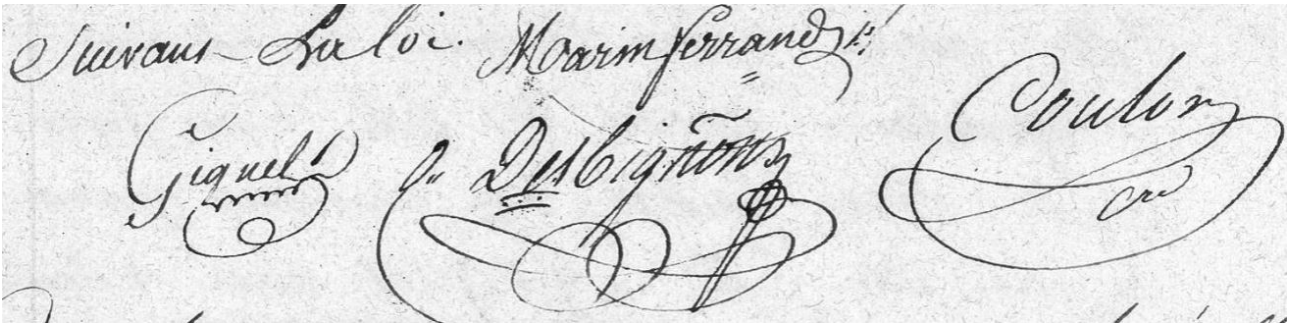 Suivant La loi. Marin ferrand
Giquel J. Desbignons Coulon